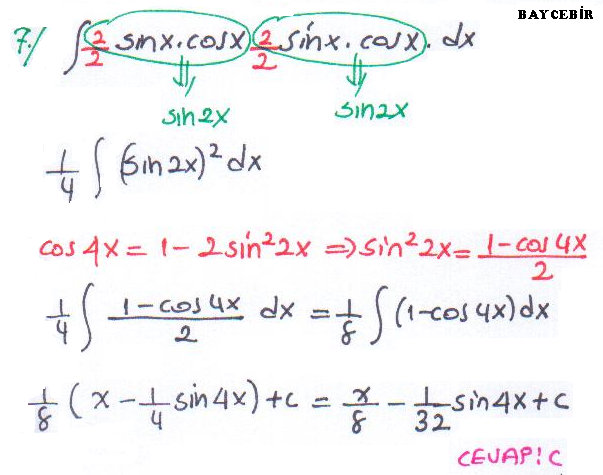 BAYCEBİR
7./ ∫ 2/2 sinx.cosx 2/2 sinx.cosx. dx
sin2x sin2x
1/4 ∫ (sin2x)² dx
cos4x = 1 - 2sin²2x ⇒ sin²2x = 1-cos4x/2
1/4 ∫ 1-cos4x/2 dx = 1/8 ∫ (1-cos4x)dx
1/8 (x - 1/4 sin4x) + c = x/8 - 1/32 sin4x + c
CEVAP: C